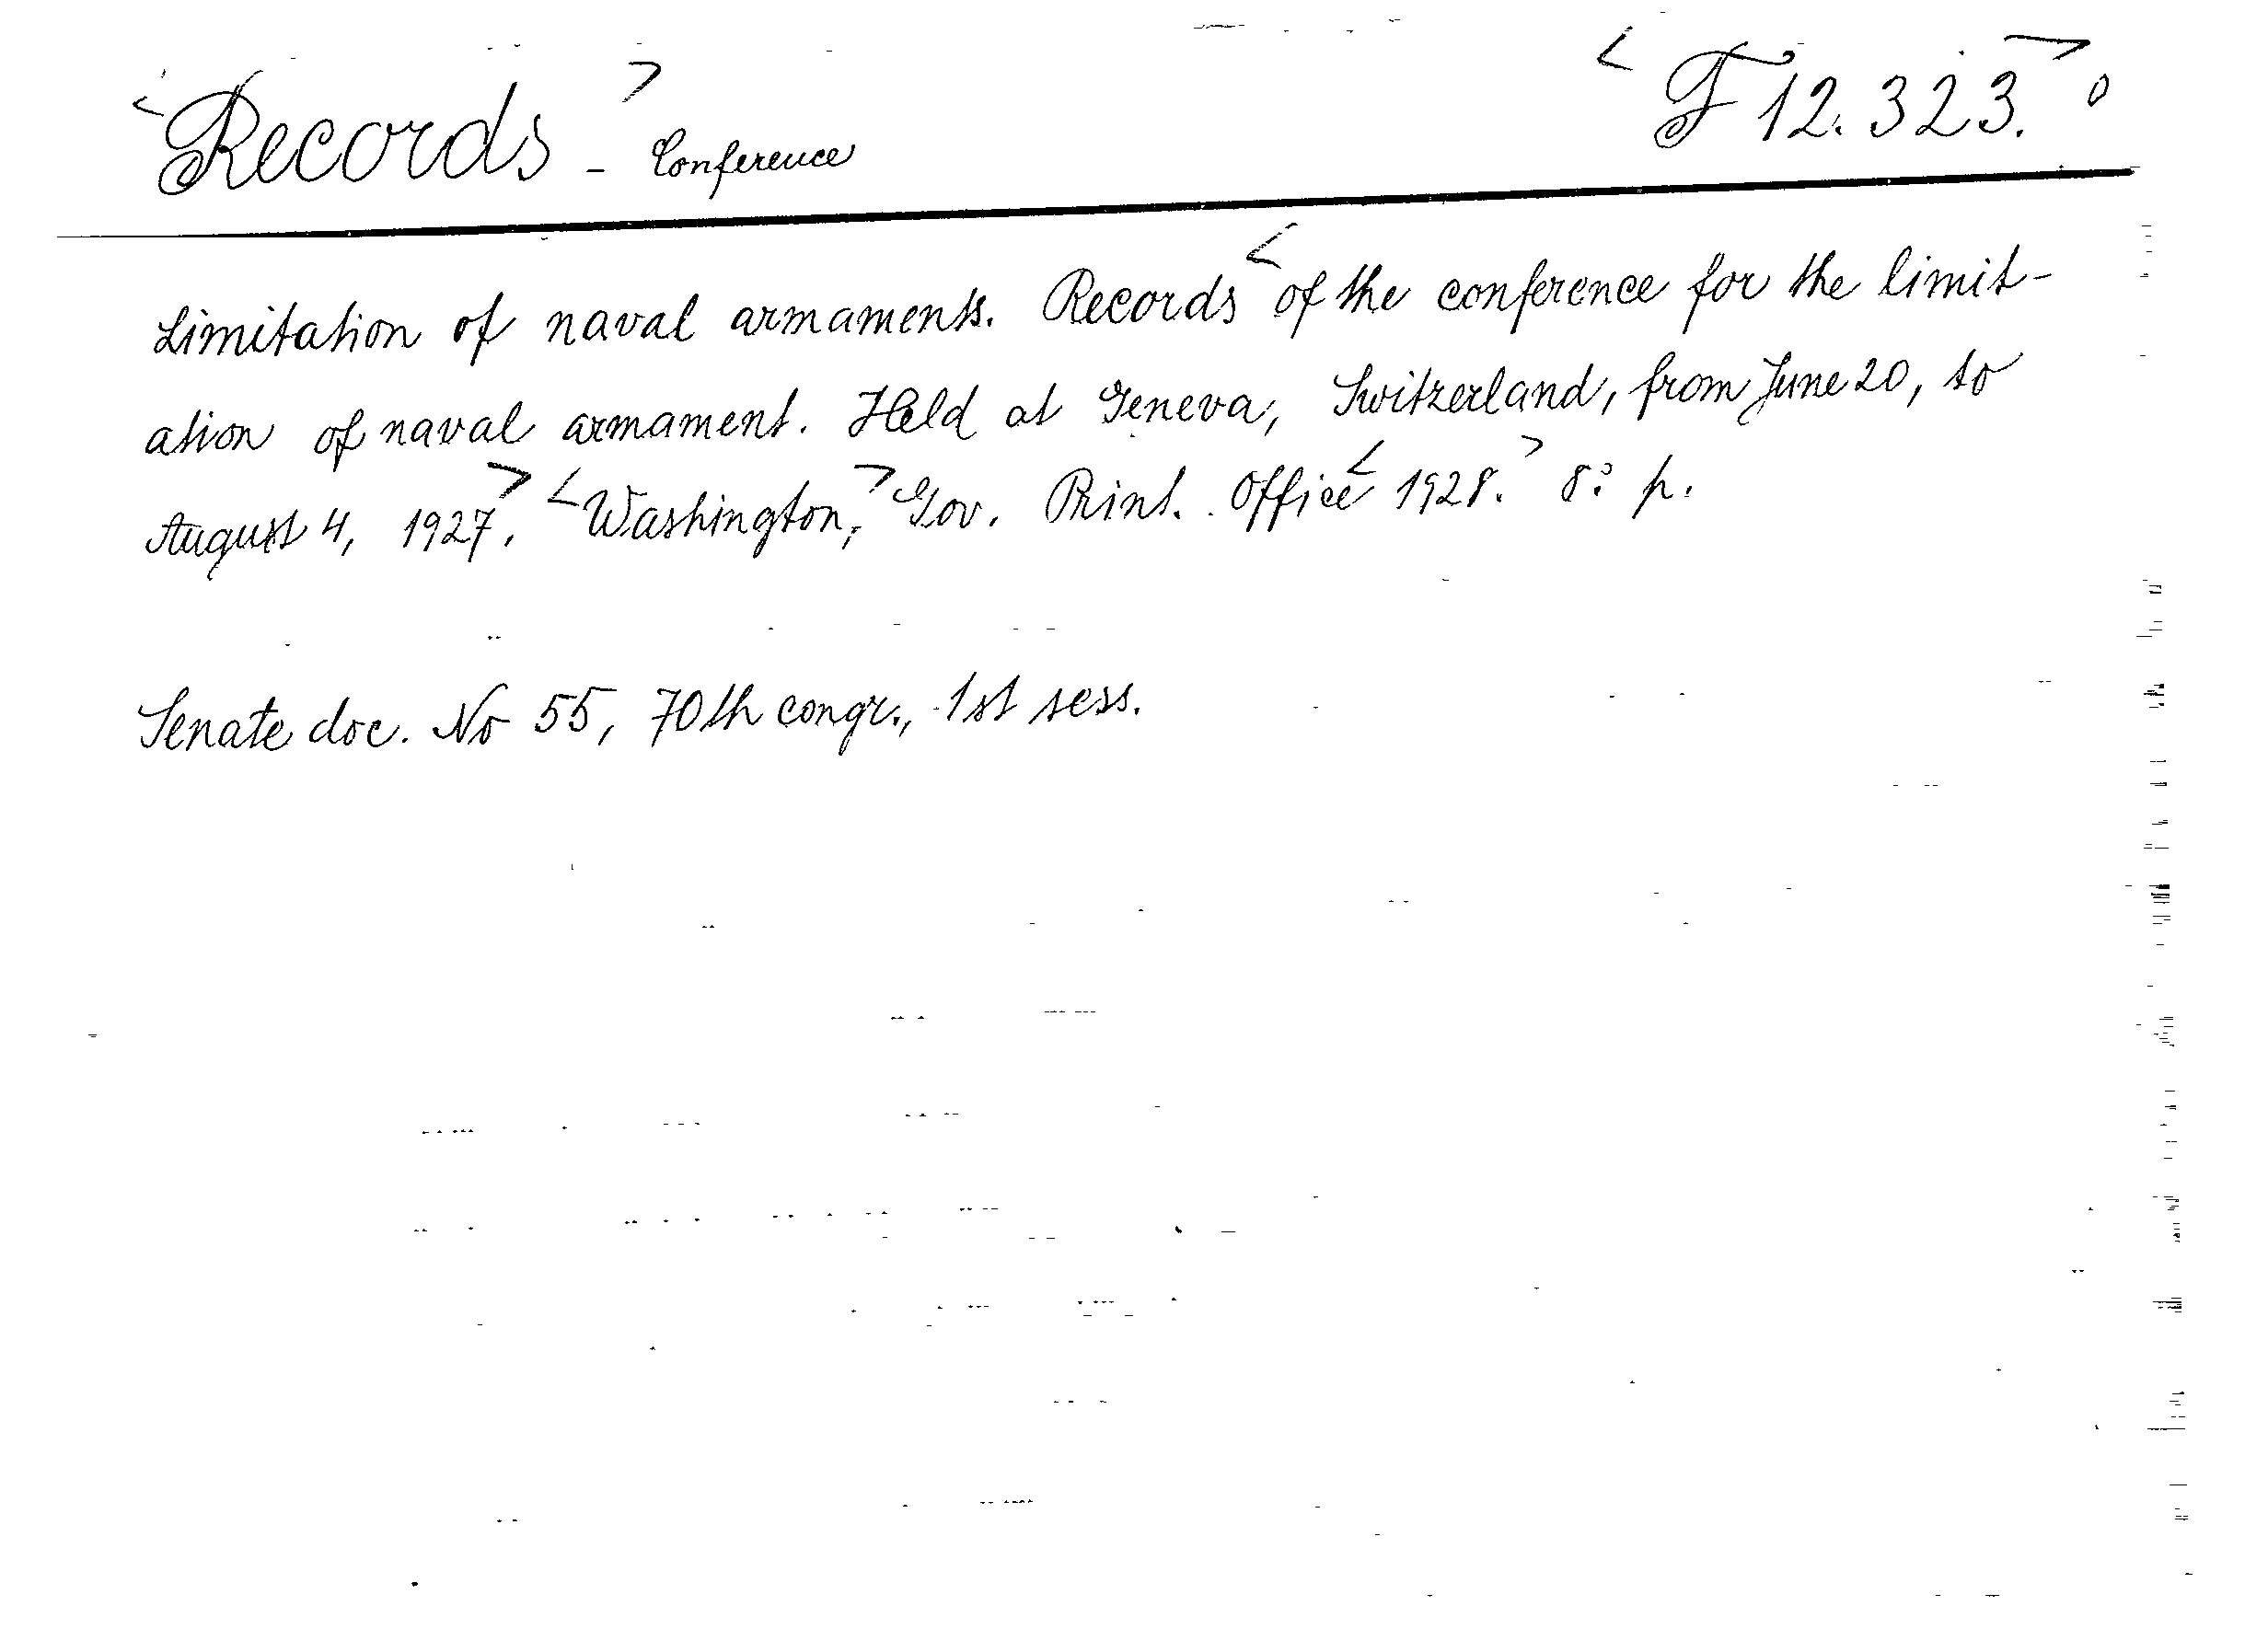 <Records> - Conference <F 12.323.> 0
Limitation of naval armaments. Records <of the conference for the limit-
ation of naval armament. Held at Geneva, Switzerland, from June 20, to
August 4, 1927>. <Washington,> Gov. Print. Office <1928.> 8:° p.
Senate doc. No 55, 70th congr., 1st sess.